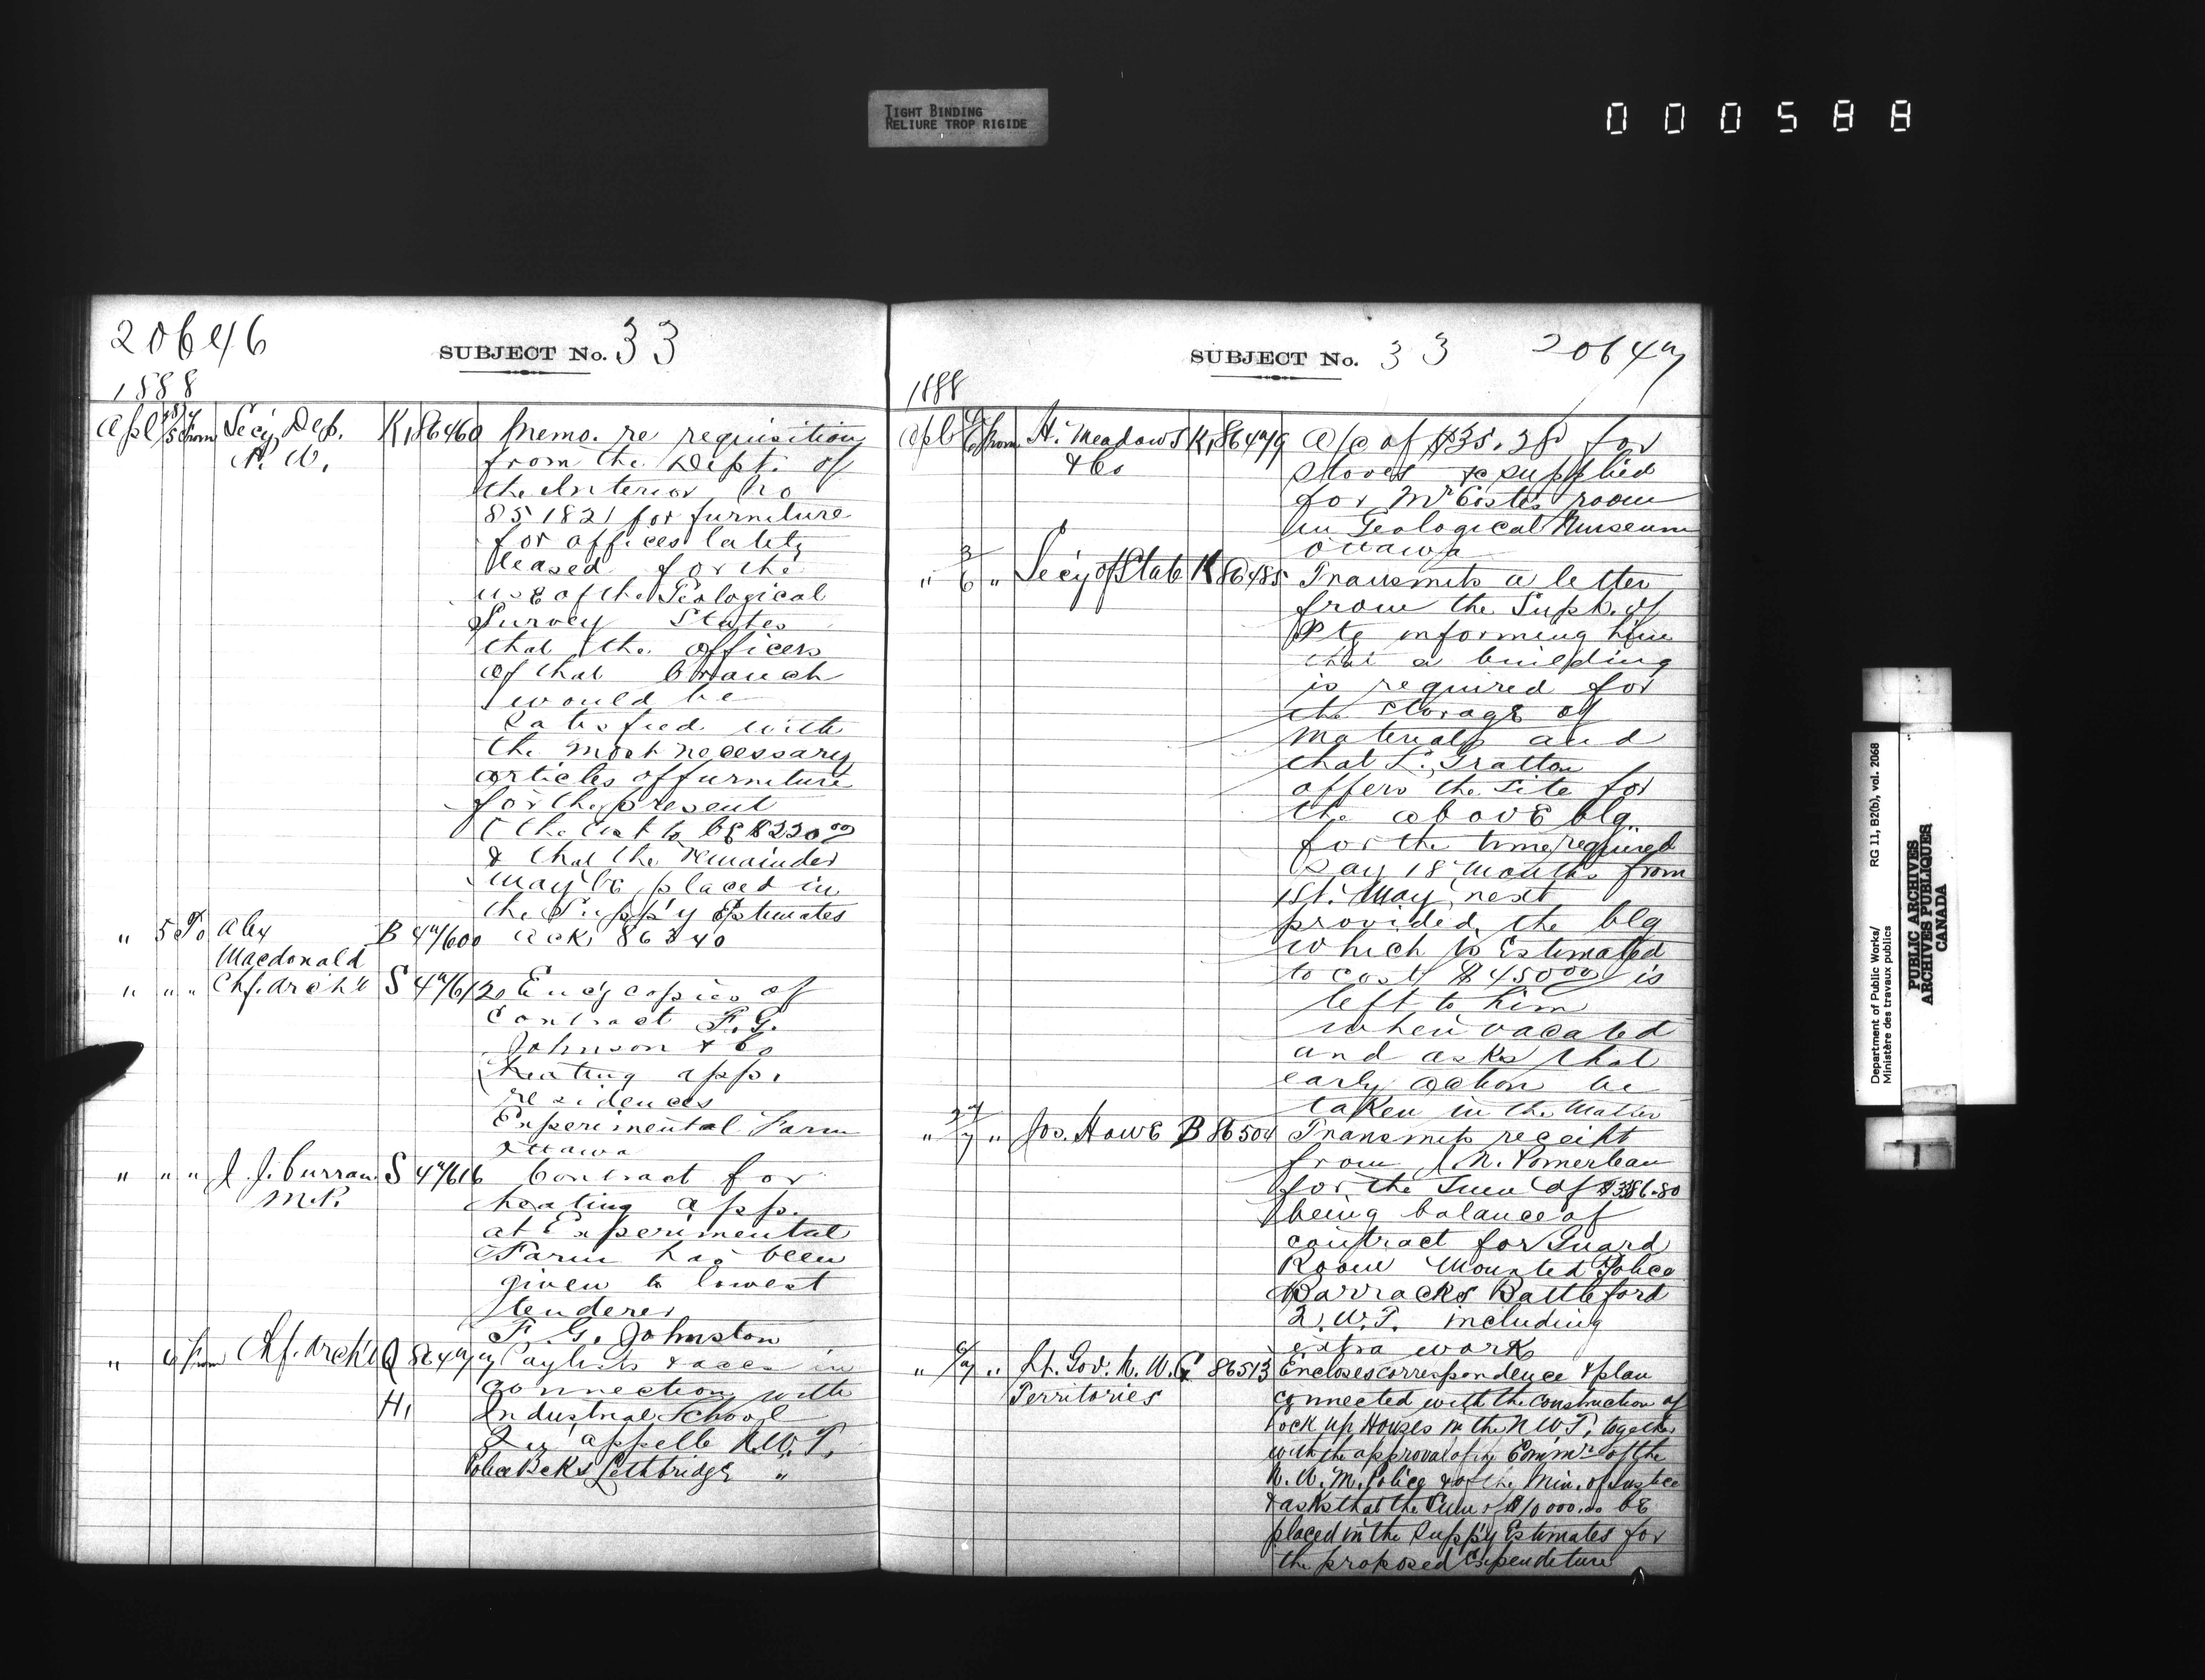 TIGHT BINDING
RELIURE TROP RIGIDE
000588
20646
SUBJECT No. 33
1888
Apl 5 from Secy Dep. K, 86460 Memo. re requisition
P. W. from the Dept. of
the Interior no
851821 for furniture
for offices lately
leased for the
use of the Geological
Survey States
that the officers
of that branch
would be
satisfied with
the most necessary
articles of furniture
for the present
(the cost to be $220.00
& that the remainder
may be placed in
the Supp'y Estimates
" 5 To Alex B 47600 ack 86340
Macdonald
" " " Chf. Arch't S 47612 Encg copies of
Contract F. G.
Johnson & Co
heating app.
residences
Experimental Farm
Ottawa
" " " J. J. Curran S 47616 Contract for
M.P. heating app.
at Experimental
Farm has been
given to lowest
tenderer
F. G. Johnston
" 6 from Chf. Arch't Q 86477 Paylists & accs in
connection with
H, Industrial School
Qu'appelle N.W.T.
Police Bcks Lethbridge "
SUBJECT No. 33 20647
1888
Apl 6 from H. Meadows K, 86479 a/c of $35.28 for
& Co stoves &c supplied
for Mr Coste's room
in Geological Museum
Ottawa
" 3/6 " Secy of State K 86485 Transmits a letter
from the Supt. of
Ptg informing him
that a building
is required for
the storage of
materials and
that L. Gratton
offers the site for
the above blg.
for the time required
say 18 months from
1st. May next
provided the blg
which is Estimated
to cost $450.00 is
left to him
when vacated
and asks that
early action be
taken in the matter
" 7 " Jos. Howe B 86504 Transmits receipt
from J. N. Pomerleau
for the sum of $386.80
being balance of
contract for Guard
Room Mounted Police
Barracks Battleford
N.W.T. including
extra work
" 6/7 " Lt. Gov. N. W. G 86513 Encloses correspondence & plan
Territories connected with the construction of
Lock up Houses in the N W T, together
with the approval of the Comm'r of the
N. W. M. Police & of the Min. of Justice
& asks that the sum of $10000.00 be
placed in the Supp'y Estimates for
the proposed Expenditure
Department of Public Works/ RG 11, B2(b), vol. 2068
Ministère des travaux publics
PUBLIC ARCHIVES
ARCHIVES PUBLIQUES
CANADA